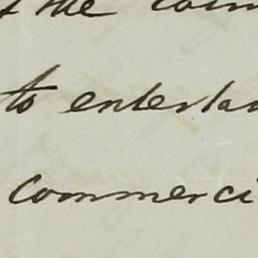 the
to entertai
commerci